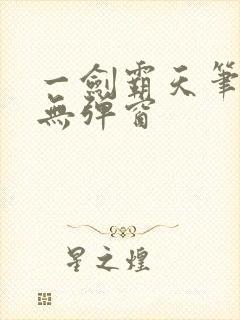 一劍霸天筆
無彈窗
星之煌